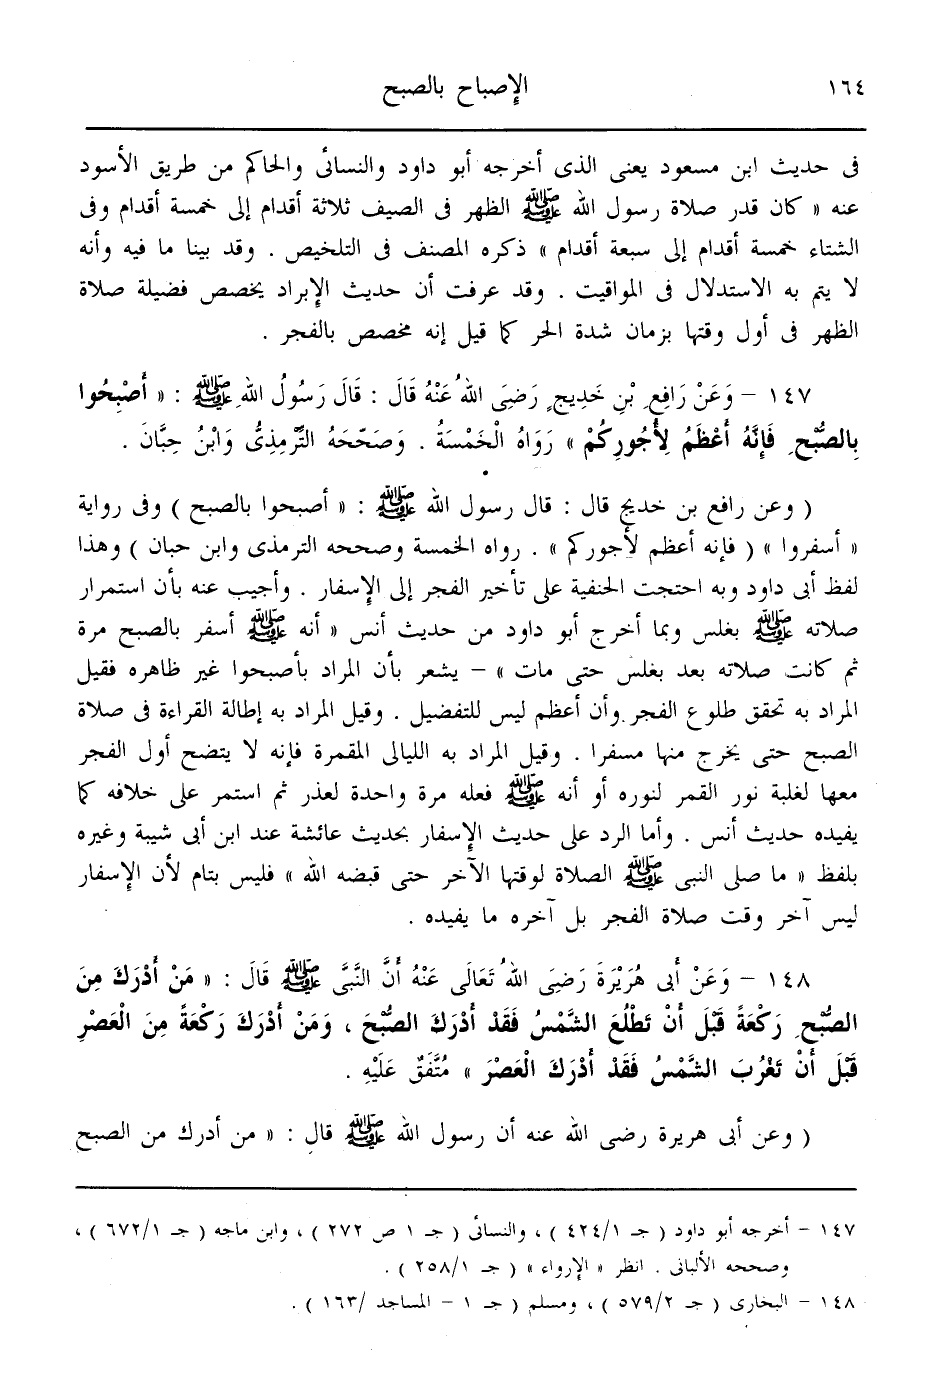 ١٦٤ الإصباح بالصبح
فى حديث ابن مسعود يعنى الذى أخرجه أبو داود والنسائى والحاكم من طريق الأسود
عنه « كان قدر صلاة رسول الله ﷺ الظهر فى الصيف ثلاثة أقدام إلى خمسة أقدام وفى
الشتاء خمسة أقدام إلى سبعة أقدام » ذكره المصنف فى التلخيص . وقد بينا ما فيه وأنه
لا يتم به الاستدلال فى المواقيت . وقد عرفت أن حديث الإبراد يخصص فضيلة صلاة
الظهر فى أول وقتها بزمان شدة الحر كما قيل إنه مخصص بالفجر .
١٤٧ – وَعَنْ رَافِعِ بْنِ خَدِيجٍ رَضِىَ اللهُ عَنْهُ قَالَ : قَالَ رَسُولُ اللهِ ﷺ : « أَصْبِحُوا
بِالصُّبْحِ فَإِنَّهُ أَعْظَمُ لِأُجُورِكُمْ » رَوَاهُ الْخَمْسَةُ . وَصَحَّحَهُ التِّرْمِذِىُّ وَابْنُ حِبَّانَ .
( وعن رافع بن خديج قال : قال رسول الله ﷺ : « أصبحوا بالصبح ) وفى رواية
« أسفروا » ( فإنه أعظم لأجوركم » . رواه الخمسة وصححه الترمذى وابن حبان ) وهذا
لفظ أبى داود وبه احتجت الحنفية على تأخير الفجر إلى الإسفار . وأجيب عنه بأن استمرار
صلاته ﷺ بغلس وبما أخرج أبو داود من حديث أنس « أنه ﷺ أسفر بالصبح مرة
ثم كانت صلاته بعد بغلس حتى مات » – يشعر بأن المراد بأصبحوا غير ظاهره فقيل
المراد به تحقق طلوع الفجر وأن أعظم ليس للتفضيل . وقيل المراد به إطالة القراءة فى صلاة
الصبح حتى يخرج منها مسفرا . وقيل المراد به الليالى المقمرة فإنه لا يتضح أول الفجر
معها لغلبة نور القمر لنوره أو أنه ﷺ فعله مرة واحدة لعذر ثم استمر على خلافه كما
يفيده حديث أنس . وأما الرد على حديث الإسفار بحديث عائشة عند ابن أبى شيبة وغيره
بلفظ « ما صلى النبى ﷺ الصلاة لوقتها الآخر حتى قبضه الله » فليس بتام لأن الإسفار
ليس آخر وقت صلاة الفجر بل آخره ما يفيده .
١٤٨ – وَعَنْ أَبِى هُرَيْرَةَ رَضِىَ اللهُ تَعَالَى عَنْهُ أَنَّ النَّبِىَّ ﷺ قَالَ : « مَنْ أَدْرَكَ مِنَ
الصُّبْحِ رَكْعَةً قَبْلَ أَنْ تَطْلُعَ الشَّمْسُ فَقَدْ أَدْرَكَ الصُّبْحَ ، وَمَنْ أَدْرَكَ رَكْعَةً مِنَ الْعَصْرِ
قَبْلَ أَنْ تَغْرُبَ الشَّمْسُ فَقَدْ أَدْرَكَ الْعَصْرَ » مُتَّفَقٌ عَلَيْهِ .
( وعن أبى هريرة رضى الله عنه أن رسول الله ﷺ قال : « من أدرك من الصبح
١٤٧ – أخرجه أبو داود ( جـ ٤٢٤/١ ) ، والنسائى ( جـ ١ ص ٢٧٢ ) ، وابن ماجه ( جـ ٦٧٢/١ ) ،
وصححه الألبانى . انظر « الإرواء » ( جـ ٢٥٨/١ ) .
١٤٨ – البخارى ( جـ ٥٧٩/٢ ) ، ومسلم ( جـ ١ – المساجد /١٦٣ ) .